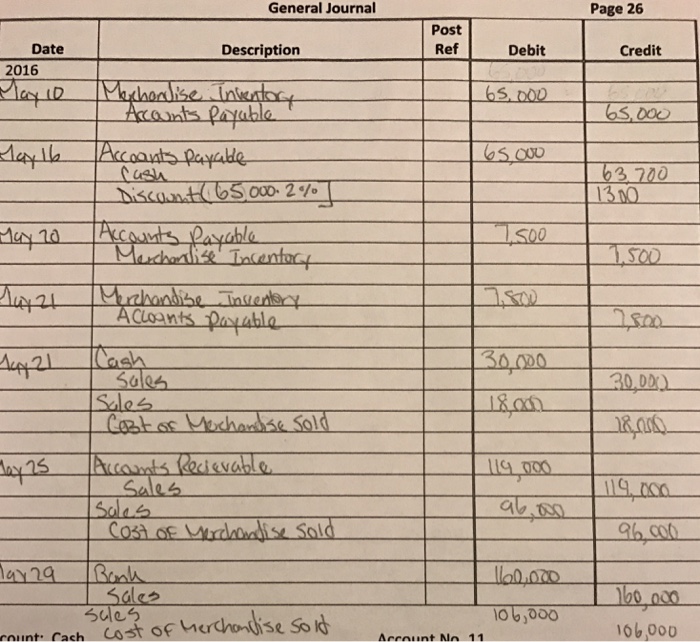 General Journal Page 26
Date Description Post Ref Debit Credit
2016
May 10 Merchandise Inventory 65,000
Accounts Payable 65,000
May 16 Accounts Payable 65,000
Cash 63,700
Discount (65,000. 2%] 1300
May 20 Accounts Payable 7,500
Merchandise Incentory 7,500
May 21 Merchandise Inventory 7,800
Accounts Payable 7,800
May 21 Cash 30,000
Sales 30,000
Sales 18,000
Cost of Merchandise Sold 18,000
May 25 Accounts Recievable 119,000
Sales 119,000
Sales 96,000
Cost of Merchandise Sold 96,000
May 29 Bank 160,000
Sales 160,000
Sales 106,000
Cost of Merchandise Sold 106,000
count: Cash Account No. 11